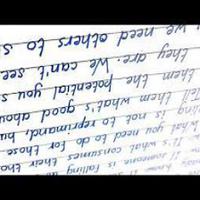 someone is falling
It's what consumes their tho
what you need to do for those
is not to reprimand, bu
Tell them what's good abou
them the potential you s
they are. We can't see
we need others to s